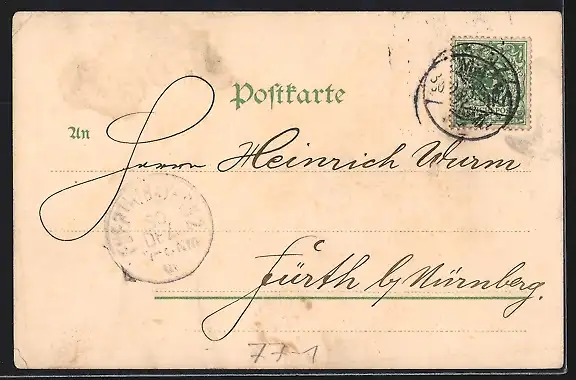 Postkarte
An
Herrn Heinrich Wurm
Fürth b/ Nürnberg.
30
DEZ
771